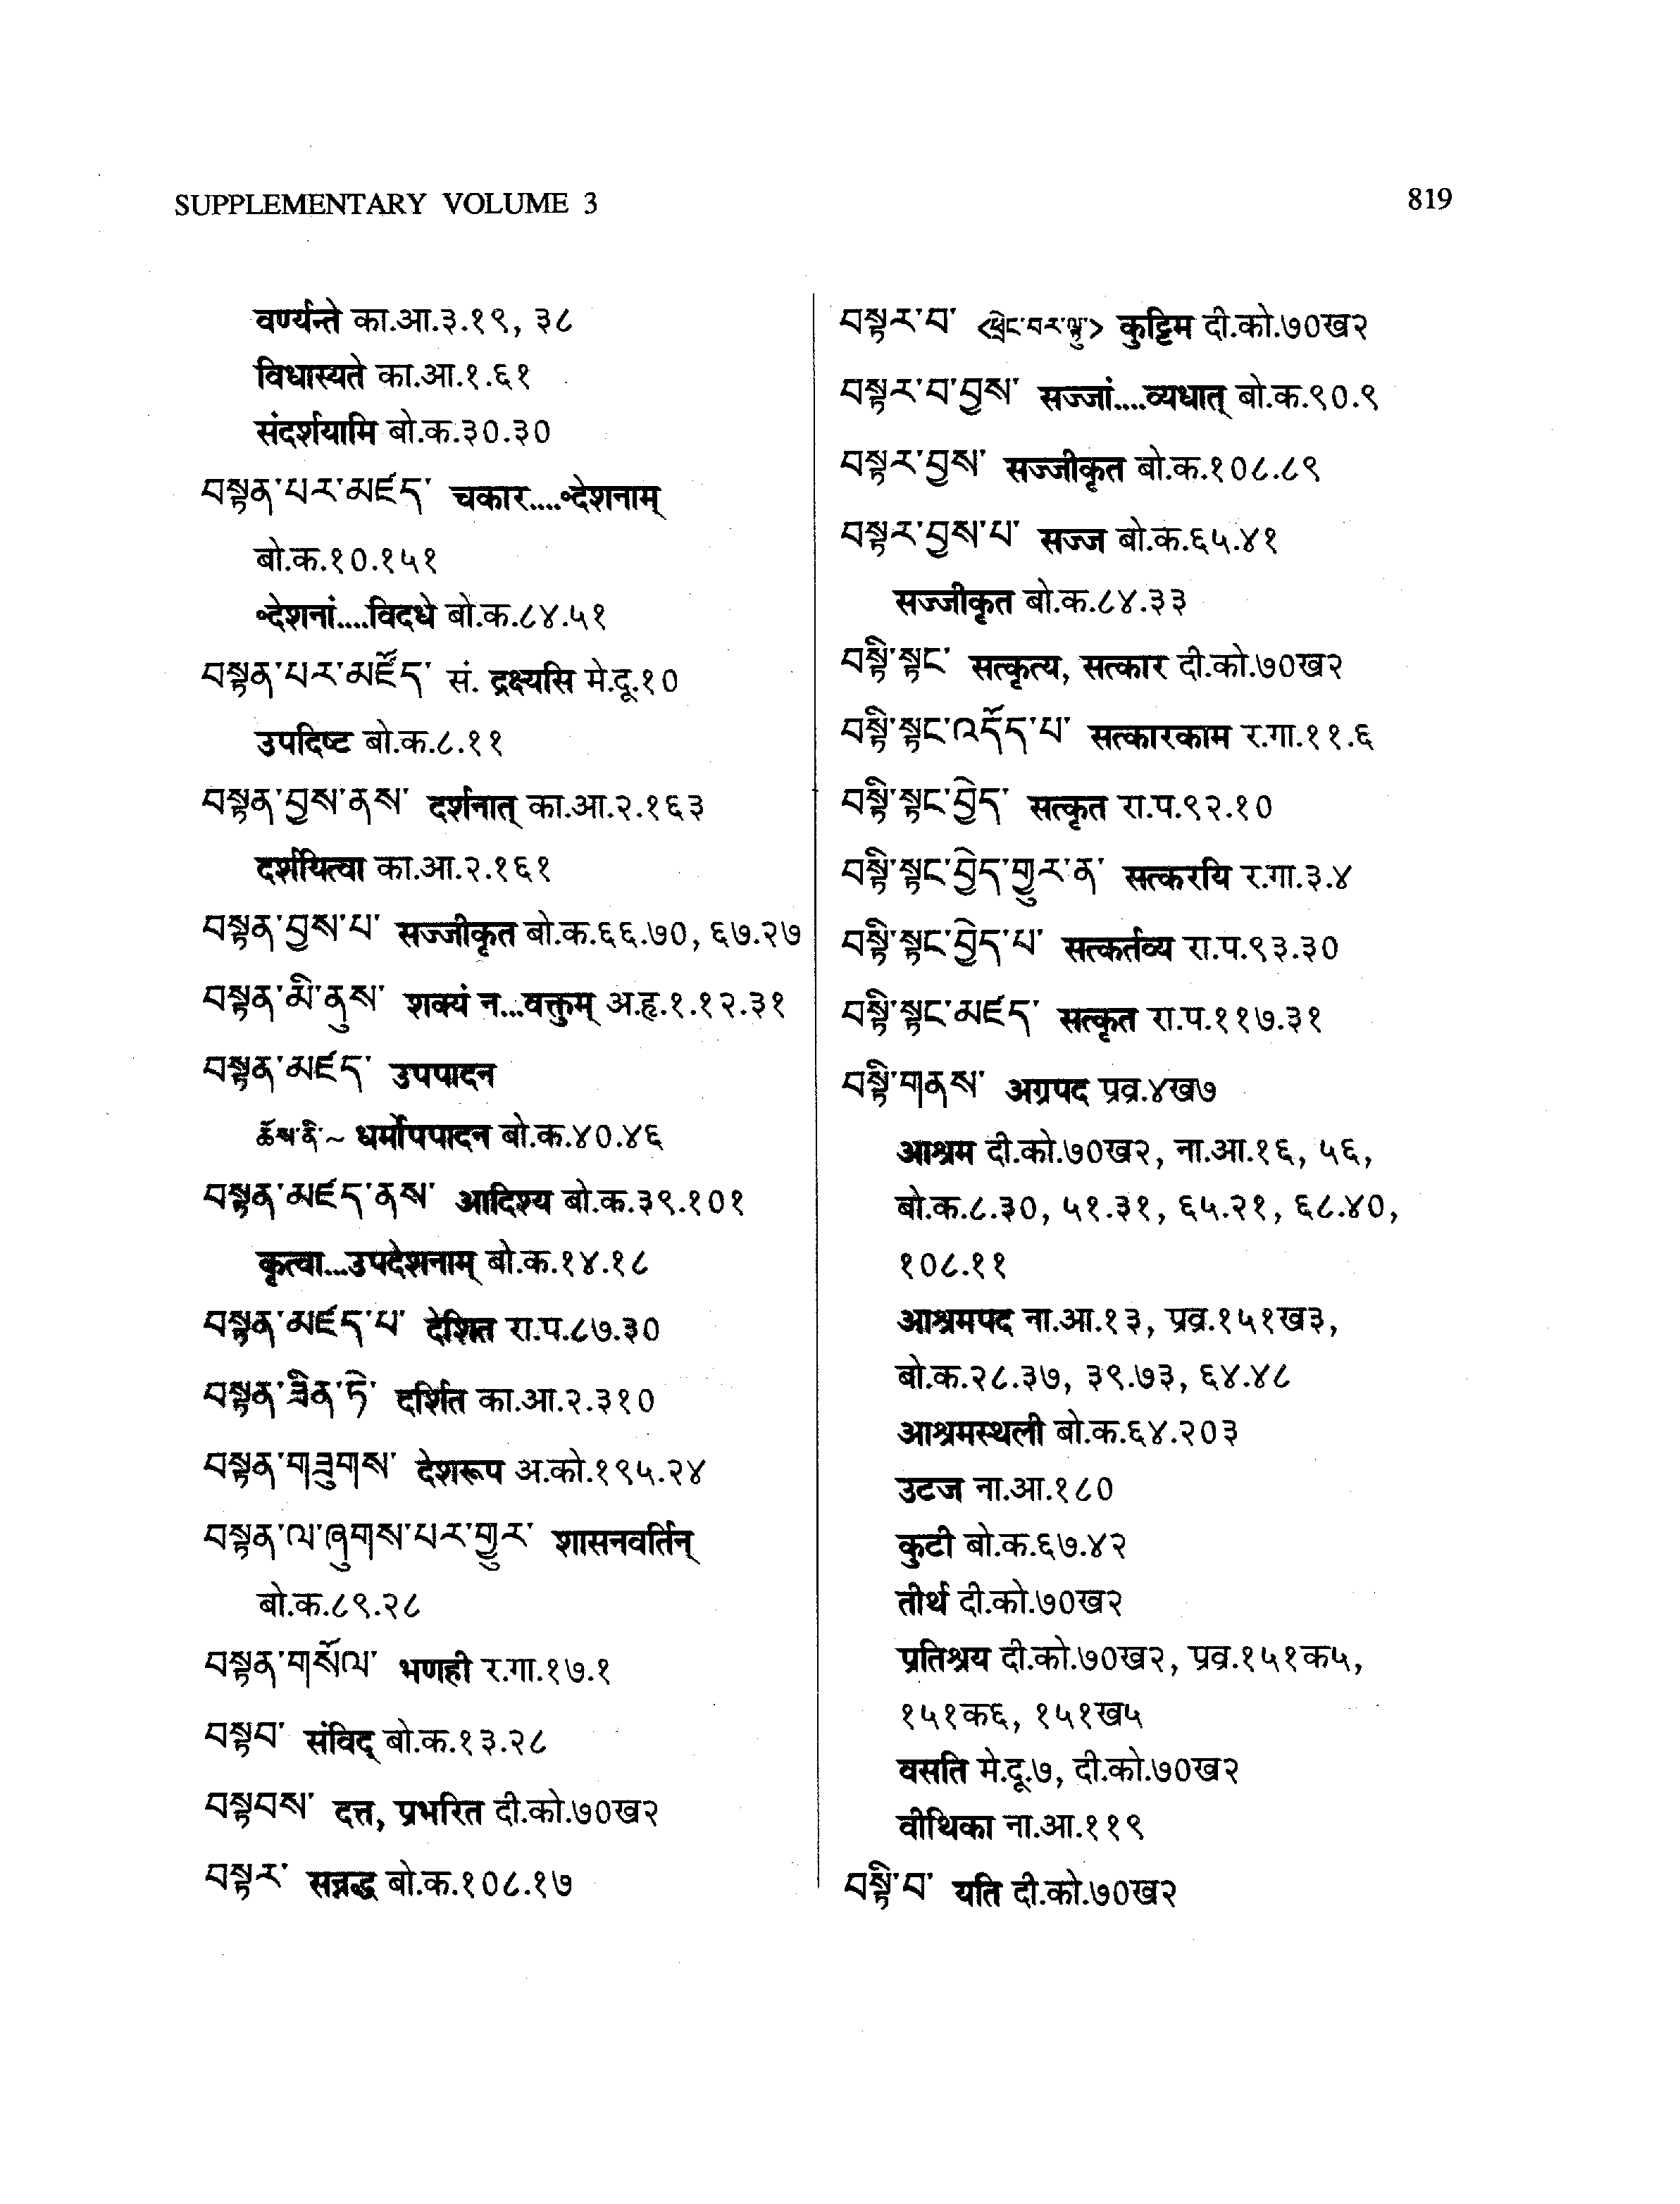 SUPPLEMENTARY VOLUME 3
819
वर्ण्यन्ते का.आ.३.१९, ३८
विधास्यते का.आ.१.६१
संदर्शयामि बो.क.३०.३०
བསྟན་པར་མཛད་ चकार....॰देशनाम्
बो.क.१०.१५१
॰देशनां....विदधे बो.क.८४.५१
བསྟན་པར་མཛོད་ सं. द्रक्ष्यसि मे.दू.१०
उपदिष्ट बो.क.८.११
བསྟན་བྱས་ནས་ दर्शनात् का.आ.२.१६३
दर्शयित्वा का.आ.२.१६१
བསྟན་བྱས་པ་ सज्जीकृत बो.क.६६.७०, ६७.२७
བསྟན་མི་ནུས་ शक्यं न...वक्तुम् अ.हृ.१.१२.३१
བསྟན་མཛད་ उपपादन
ཆོས་ནི་~ धर्मोपपादन बो.क.४०.४६
བསྟན་མཛད་ནས་ आदिश्य बो.क.३९.१०१
कृत्वा...उपदेशनाम् बो.क.१४.१८
བསྟན་མཛད་པ་ देशित रा.प.८७.३०
བསྟན་ཟིན་ཏེ་ दर्शित का.आ.२.३१०
བསྟན་གཟུགས་ देशरूप अ.को.१९५.२४
བསྟན་ལ་ཞུགས་པར་གྱུར་ शासनवर्तिन्
बो.क.८९.२८
བསྟན་གསོལ་ भणही र.गा.१७.१
བསྟབ་ संविद् बो.क.१३.२८
བསྟབས་ दत्त, प्रभरित दी.को.७०ख२
བསྟར་ सन्नद्ध बो.क.१०८.१७
བསྟར་བ་ <ཕྲེང་བར་ལྟ་བུ་> कुट्टिम दी.को.७०ख२
བསྟར་བ་བྱས་ सज्जां....व्यधात् बो.क.९०.९
བསྟར་བྱས་ सज्जीकृत बो.क.१०८.८९
བསྟར་བྱས་པ་ सज्ज बो.क.६५.४१
सज्जीकृत बो.क.८४.३३
བསྟི་སྟང་ सत्कृत्य, सत्कार दी.को.७०ख२
བསྟི་སྟང་འདོད་པ་ सत्कारकाम र.गा.११.६
བསྟི་སྟང་བྱེད་ सत्कृत रा.प.९२.१०
བསྟི་སྟང་བྱེད་གྱུར་ན་ सत्करयि र.गा.३.४
བསྟི་སྟང་བྱེད་པ་ सत्कर्तव्य रा.प.९३.३०
བསྟི་སྟང་མཛད་ सत्कृत रा.प.११७.३१
བསྟི་གནས་ अग्रपद प्रव्र.४ख७
आश्रम दी.को.७०ख२, ना.आ.१६, ५६,
बो.क.८.३०, ५१.३१, ६५.२१, ६८.४०,
१०८.११
आश्रमपद ना.आ.१३, प्रव्र.१५१ख३,
बो.क.२८.३७, ३९.७३, ६४.४८
आश्रमस्थली बो.क.६४.२०३
उटज ना.आ.१८०
कुटी बो.क.६७.४२
तीर्थ दी.को.७०ख२
प्रतिश्रय दी.को.७०ख२, प्रव्र.१५१क५,
१५१क६, १५१ख५
वसति मे.दू.७, दी.को.७०ख२
वीथिका ना.आ.११९
བསྟི་བ་ यति दी.को.७०ख२